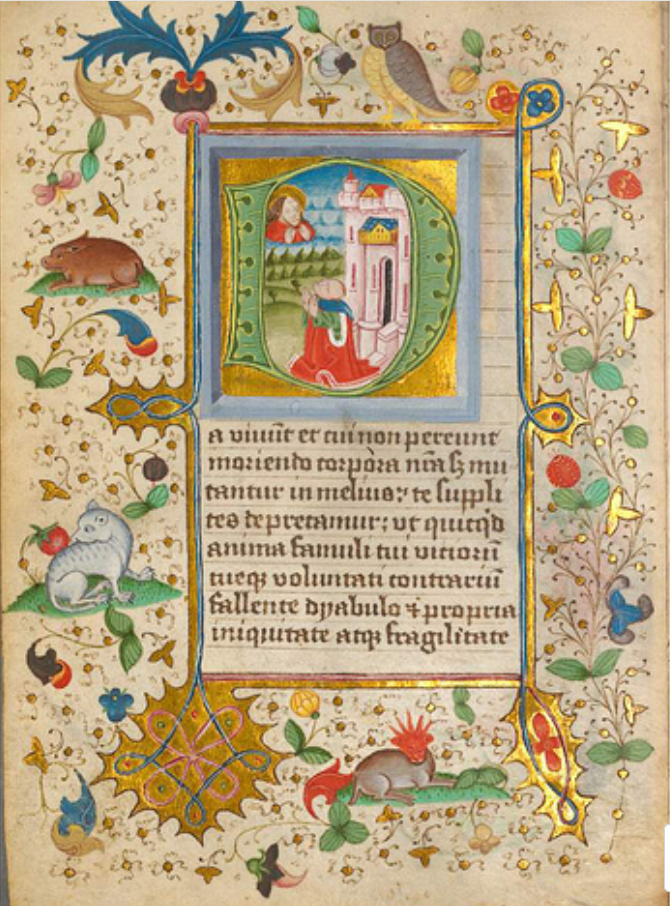 D
a viuūt et cui non pereunt
moriendo corpora nr̄a sꝫ mu
tantur in melius: te suppli
ces deprecamur: vt quicq̇d
anima famuli tui vitiorū
tueqꝫ voluntati contrariū
fallente dyabulo ⁊ propria
iniquitate atqꝫ fragilitate